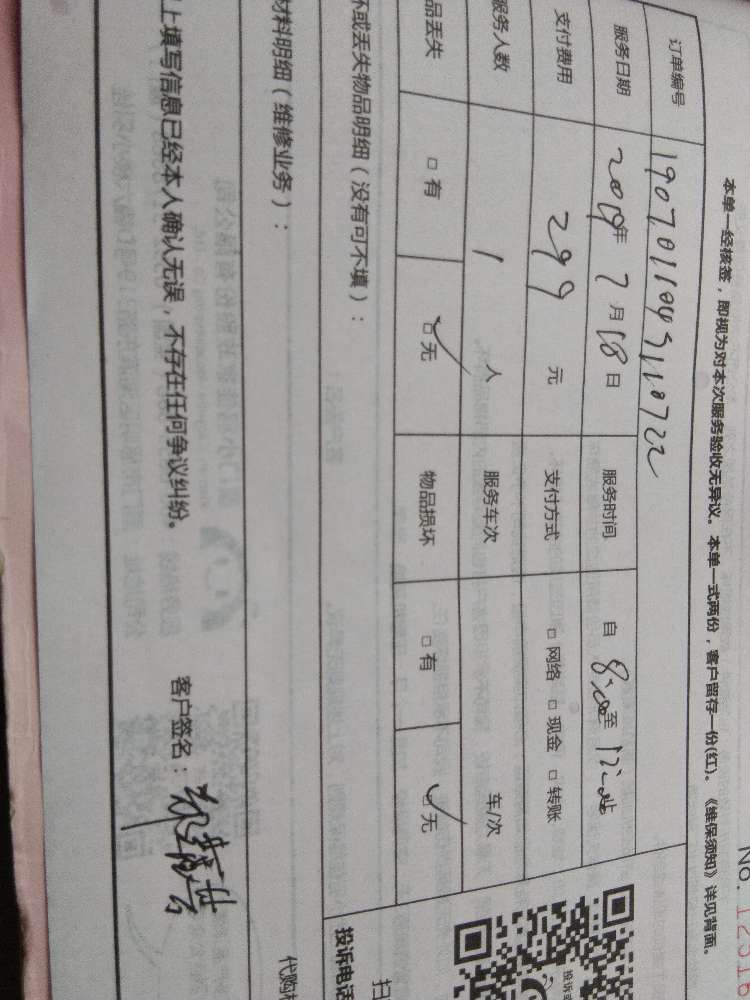 No. 12516
本单一经核签，即视为对本次服务验收无异议。本单一式两份，客户留存一份(红)。《维保须知》详见背面。
订单编号
服务日期 2019年 7月 18日 服务时间 自 8:00 至 12:00
支付费用 299 元 支付方式 □ 网络 □ 现金 □ 转账
服务人数 1 人 服务车次 车/次
品丢失 □ 有 □ 无 物品损坏 □ 有 □ 无
坏或丢失物品明细（没有可不填）：
材料明细（维修业务）：
上填写信息已经本人确认无误，不存在任何争议纠纷。
客户签名：
投诉电话
代购